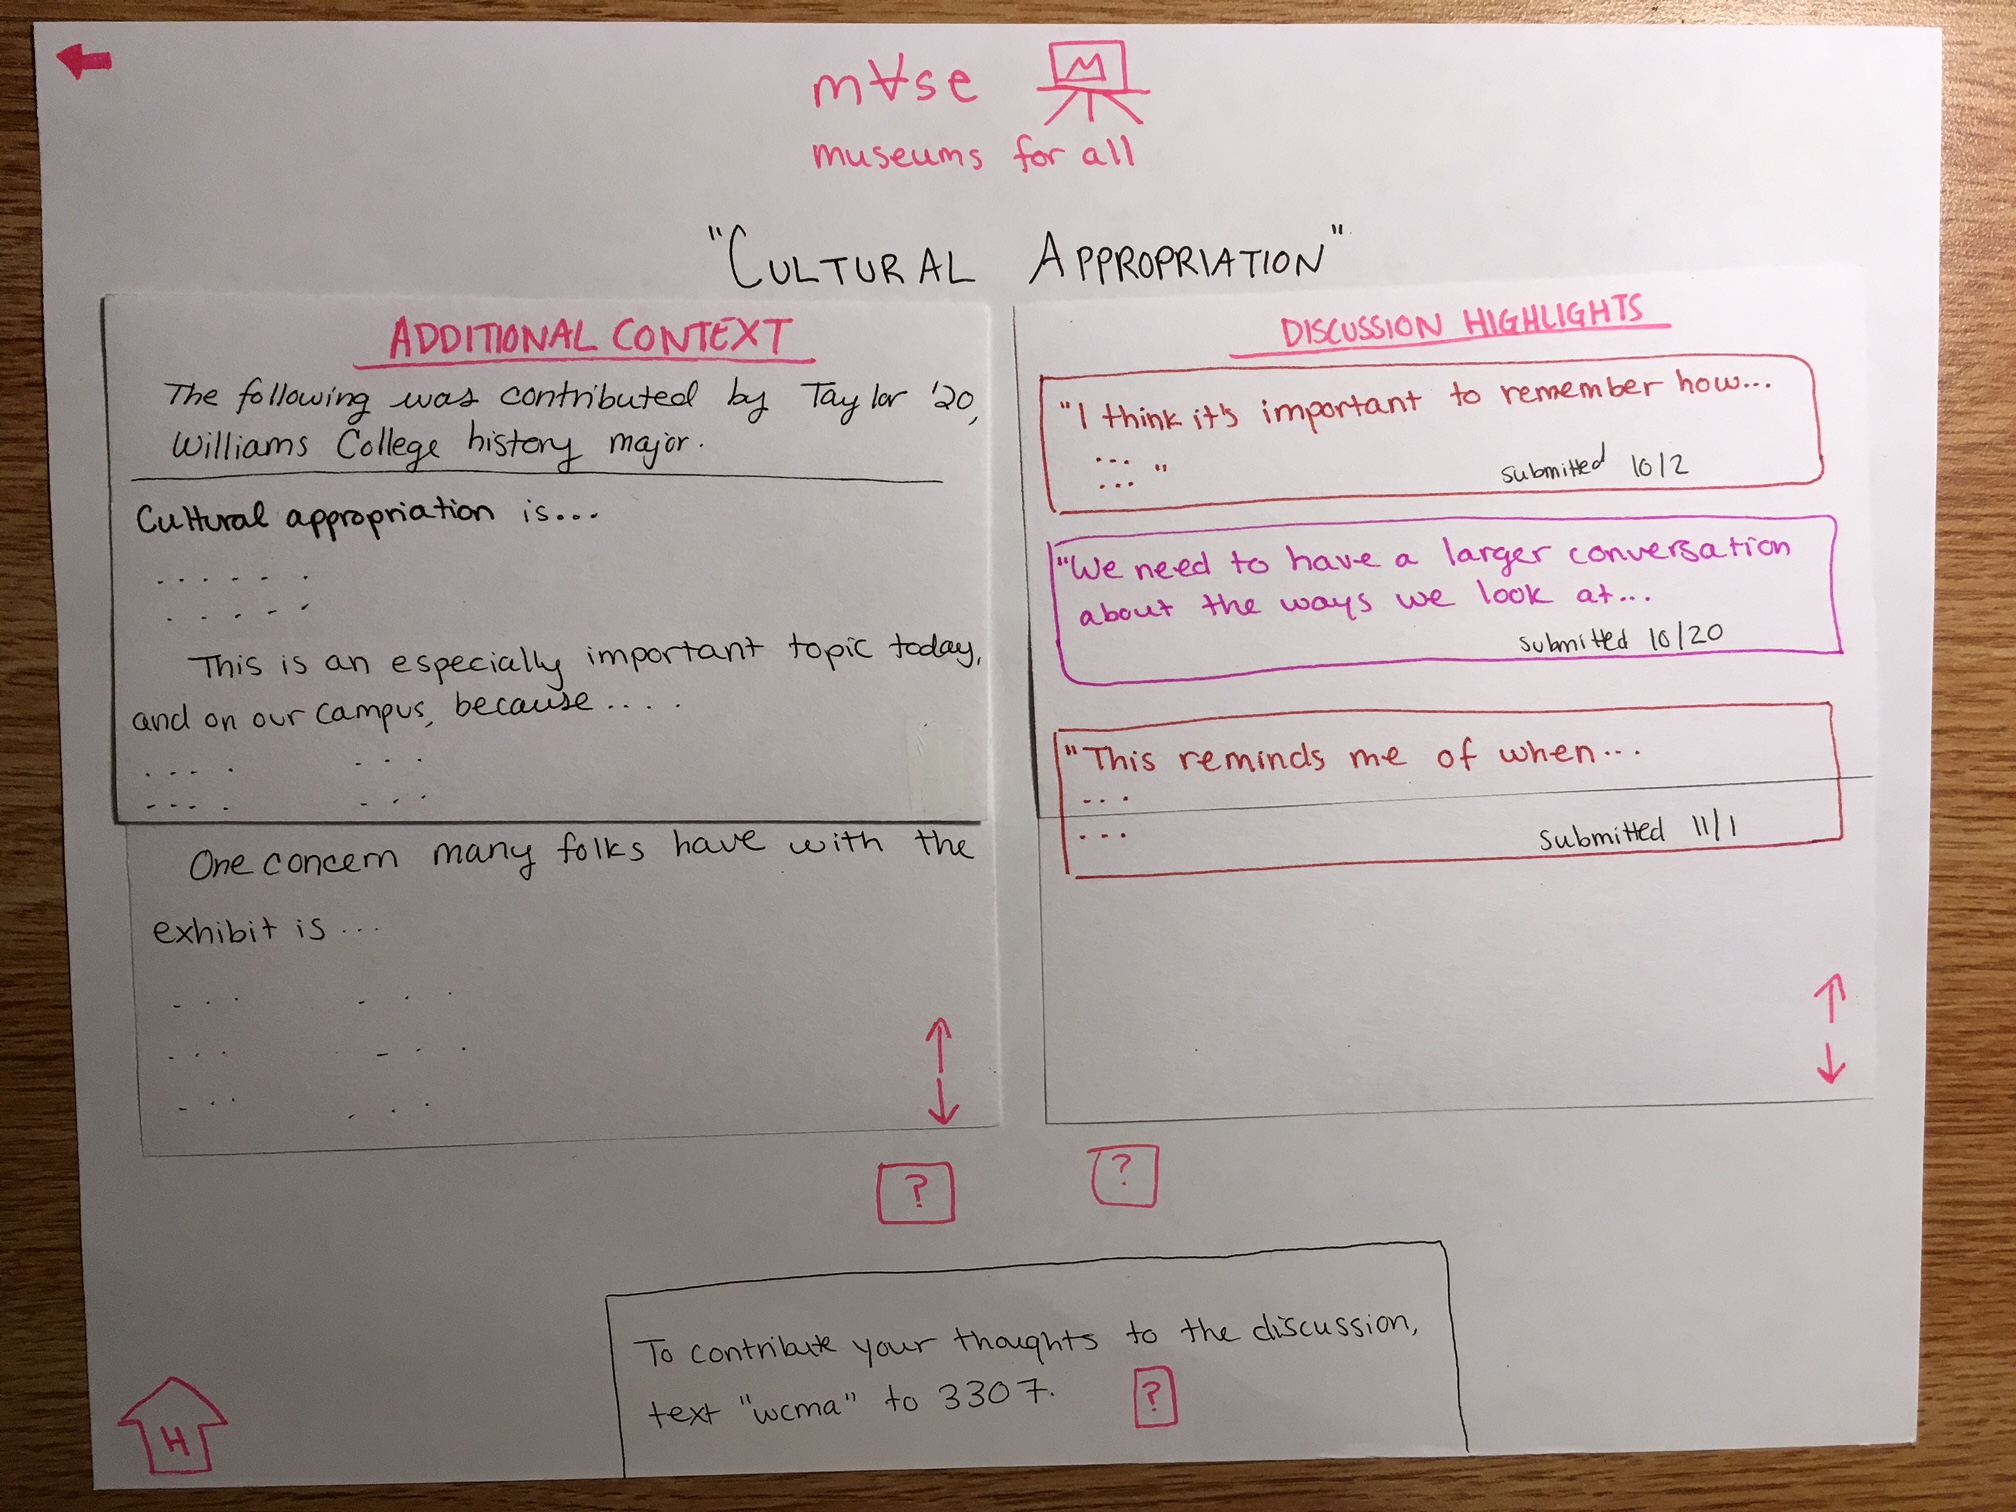 m∀se
M
museums for all
"CULTURAL APPROPRIATION"
ADDITIONAL CONTEXT
The following was contributed by Taylor '20,
Williams College history major.
Cultural appropriation is...
This is an especially important topic today,
and on our campus, because....
One concern many folks have with the
exhibit is...
DISCUSSION HIGHLIGHTS
"I think it's important to remember how...
... "
...
submitted 10/2
"We need to have a larger conversation
about the ways we look at...
submitted 10/20
"This reminds me of when...
...
...
submitted 11/1
?
?
To contribute your thoughts to the discussion,
text "wcma" to 3307. ?
H